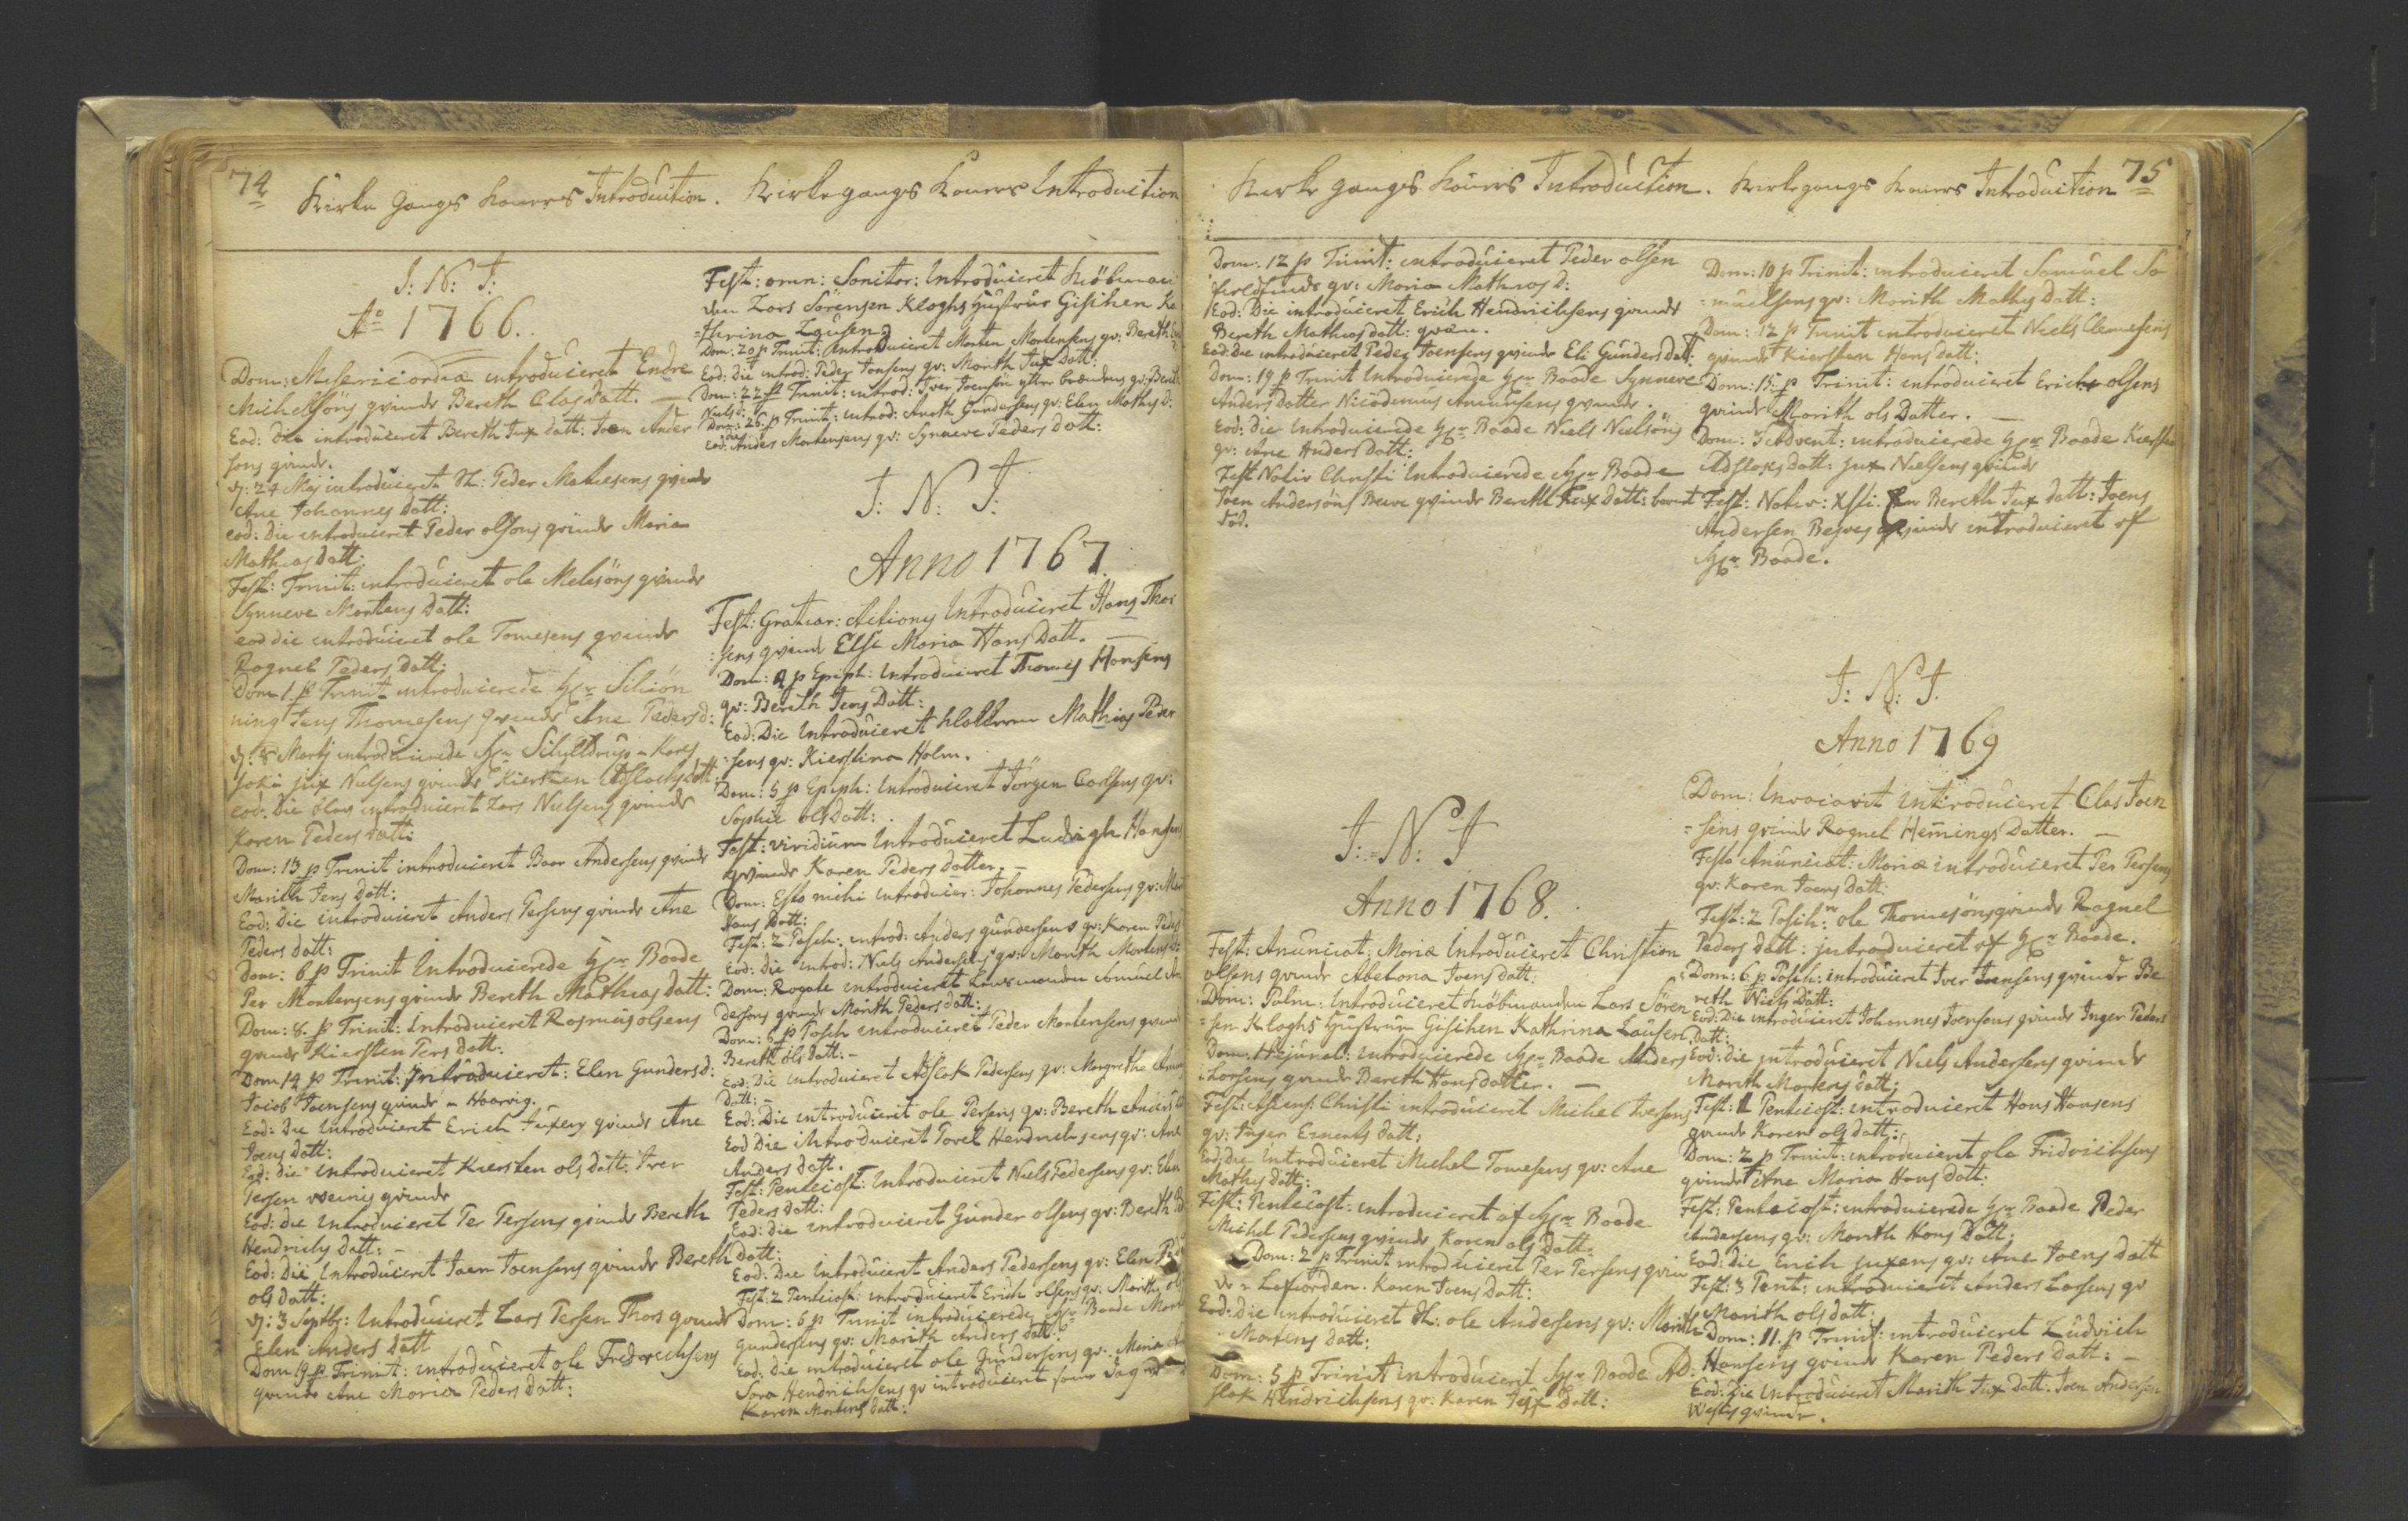 74
Kirke Gangs Koners Introduction. Kirkegangs Koners Introduction
J: N: J:
Ao 1766.
Dom: Misericordia introduceret Endre
Michelsöns qvinde Bereth Clas datt. —
Eod: die introduceret Bereth Jux datt: Joen Ander
sens qvinde.
d: 24 Maj introduceret Sl: Peder Mathesens qvinde
Ane Johannes datt:
eod: die introduceret Peder olsens qvinde Maria
Mathias datt:
Fest: Trinit: introduceret ole Melesöns qvinde
Synneve Mortens datt:
eod die introduceret ole Tomesens qvinde
Ragnel Peders datt:
Dom 1 p Trinit introducerede Hr Schiön
ning Jens Thomesens qvinde Ane Peders d:
eod: die introduceret Lars Nielsens qvinde
Karen Peders datt:
Dom: 13 p Trinit introduceret Baar Andersens qvinde
Marith Jens datt:
Eod: die introduceret Anders Persens qvinde Ane
Peders datt:
Dom: 6 p Trinit Introducerede Hr Baade
Per Mortensens qvinde Bereth Mathias datt:
Dom: 8 p Trinit: Introduceret Rasmus olsens
qvinde Kiersten Pers datt:
Dom 14 p Trinit: Introduceret: Elen Gunders d:
Jacob Joensens qvinde - Haarvig.
Eod: die Introduceret Erich Juxens qvinde Ane
Joens datt:
Eod: die Introduceret Kiersten ols datt: Iver
Persen qvinde
Eod: die Introduceret Per Persens qvinde Bereth
Hendrichs datt: —
Eod: die Introduceret Joen Joensens qvinde Bereth
ols datt:
d: 3 Septbr: Introduceret Lars Persen Thors qvinde
Elen Anders datt
Dom 19 p Trinit: introduceret ole Frederichsens
qvinde Ane Maria Peders datt:
Fest: omn: Sanctor: Introduceret Kiöbman
den Lars Sörensen Kloghs Hustrue Gischen Ka
=thrina Lausen.
Dom: 20 p Trinit: Introduceret Morten Mortensens qv: Bereth
Eod: die introd: Peder Joensens qv: Marith Jux Datt:
Dom: 22 p Trinit: introd: Iver Joensen ytter qv: Bereth
Niels d:
Dom: 26 p Trinit: introd: Gundersens qv: Elen Mathis d:
Eod: die Anders Mortensens qv: Synneve Peders Datt:
J: N: J:
Anno 1767.
Fest: Gratiar: Actionis Introduceret Hans Thor
:sens qvinde Else Maria Hans Datt. —
Dom: 4 p Epiph: Introduceret Thomes Hansens
qv: Bereth Jens Datt:
Eod: Die Introduceret Klokkeren Mathias Peder
:sens qv: Kierstina Holm.
Dom: 5 p Epiph: Introduceret Jörgen Carlsens qv:
Sophie ols Datt:
Fest: viridium Introduceret Ludvigh Hansens
qvinde Karen Peders datter. —
Dom: Esto mihi introducer: Johannes Pedersens qv:
Hans Datt:
Fest: 2 Pasch: introd: Anders gundersens qv: Karen Peders
Eod: die introd: Niels Andersens qv: Marith Mortens d:
Dom: Rogate introduceret
dersens qvinde Marith Peders datt:
Dom: 6 p Pasch introduceret Peder Mortensens qvinde
Bereth ols datt: —
Eod: Die introduceret Adslak Pedersens qv: Margrethe
Datt: —
Eod: Die introduceret ole Persens qv: Bereth Anders
Eod Die introduceret Povel Hendrichsens qv: Ane
Anders datt.
Fest: Pentecost: Introduceret Niels Pedersens qv: Elen
Peders datt:
Eod: die introduceret Gunder olsens qv: Bereth
Datt:
Eod: Die Introduceret Anders Pedersens qv: Elen
Fest: 2 Pentecost: introduceret Erich olsens qv: Marith
Dom: 6 p Trinit introducerede Hr Baade
gundersens qv: Marith Anders datt:
Eod: die introduceret ole Gundersens qv: Maria
Hendrichsens qv introduceret samme dag
Karen Mortens datt:
75
Kirke gangs Koners Introduction. Kirkegangs Koners Introduction
Dom: 12 p Trinit: introduceret Peder olsen
qv: Maria Mathias D:
Eod: Die introduceret Erich Hendrichsens qvinde
Bereth Mathias datt:
Eod: die introduceret Peder Joensens qvinde Eli Gunders datt:
Dom: 19 p Trinit Introducerede Hr Baade Synneve
Anders Datter Nicodemus Amundsens qvinde.
Eod: die Introducerede Hr Baade Niels Nielsöns
qv: Ane Anders datt:
Fest Nativ Christi Introducerede Hr Baade
Joen Andersöns qvinde Bereth Jux datt:
J: N: J
Anno 1768.
Fest: Anunciat: Mariæ Introduceret Christian
olsens qvinde Abelona Joens datt:
Dom: Palm: Introduceret Kiöbmanden Lars Sören
=sen Kloghs Hustrue Gischen Kathrina Lausen.
Dom: introducerede Hr Baade Anders
Larsens qvinde Bereth Hans datter. —
Fest: Ascens: Christi introduceret Michel Iversens
qv: Inger datt:
Eod: die Introduceret Michel Tomesens qv: Ane
Mathis datt:
Fest: Pentecost: introduceret af Hr Baade
Michel Pedersens qvinde Karen ols datt:
Dom: 2 p Trinit introduceret Per Persens qvin
de - Karen Joens datt:
Eod: die introduceret Sl: ole Andersens qv: Marith
Mortens datt:
Dom: 5 p Trinit introduceret Hr Baade Ad
slak Hendrichsens qv: Karen Jux Datt:
Dom: 10 p Trinit: introduceret Samuel Sa
=muelsens qv: Marith Mathis Datt:
Dom: 12 p Trinit introduceret Niels Clemesens
qvinde Kiersten Hans datt:
Dom: 15 p Trinit: introduceret Erich olsens
qvinde Marith ols Datter. —
Dom: Advent: introducerede Hr Baade Kiersten
Adslaks datt: Jux Nielsens qvinde
Fest: Nativ: Xsti: Bereth Jux datt: Joens
Andersen qvinde introduceret af
Hr Baade.
J: N: J.
Anno 1769
Dom: Invocavit introduceret Clas Joen
=sens qvinde Ragnel Hemings Datter. —
Festo Anunciat: Mariæ introduceret Per Persens
qv: Karen Joens datt:
Fest: 2 Pasch: ole Thomesöns qvinde Ragnel
Peders datt: introduceret af Hr Baade.
Dom: 6 p Pasch: introduceret Iver Joensens qvinde Be
reth Niels Datt:
Eod: Die introduceret Johannes Joensens qvinde Inger Peders
Datt:
Eod: die introduceret Niels Andersens qvinde
Marith Mortens datt:
Fest: Pentecost: introduceret Hans Hansens
qvinde Karen ols datt:
Dom: 2 p Trinit: introduceret ole Fridrichsens
qvinde Ane Maria Hans datt:
Fest: Pentecost: introducerede Hr Baade Peder
Andersens qv: Marith Hans Datt:
Eod: die Erich Juxens qv: Ane Joens datt
Fest: 3 Pent: introduceret Anders Larsens qv
Marith ols datt:
Dom: 11 p Trinit: introduceret Ludvich
Hansens qvinde Karen Peders datt: —
Eod: die introduceret Marith Jux datt: Joen Andersen
qvinde.